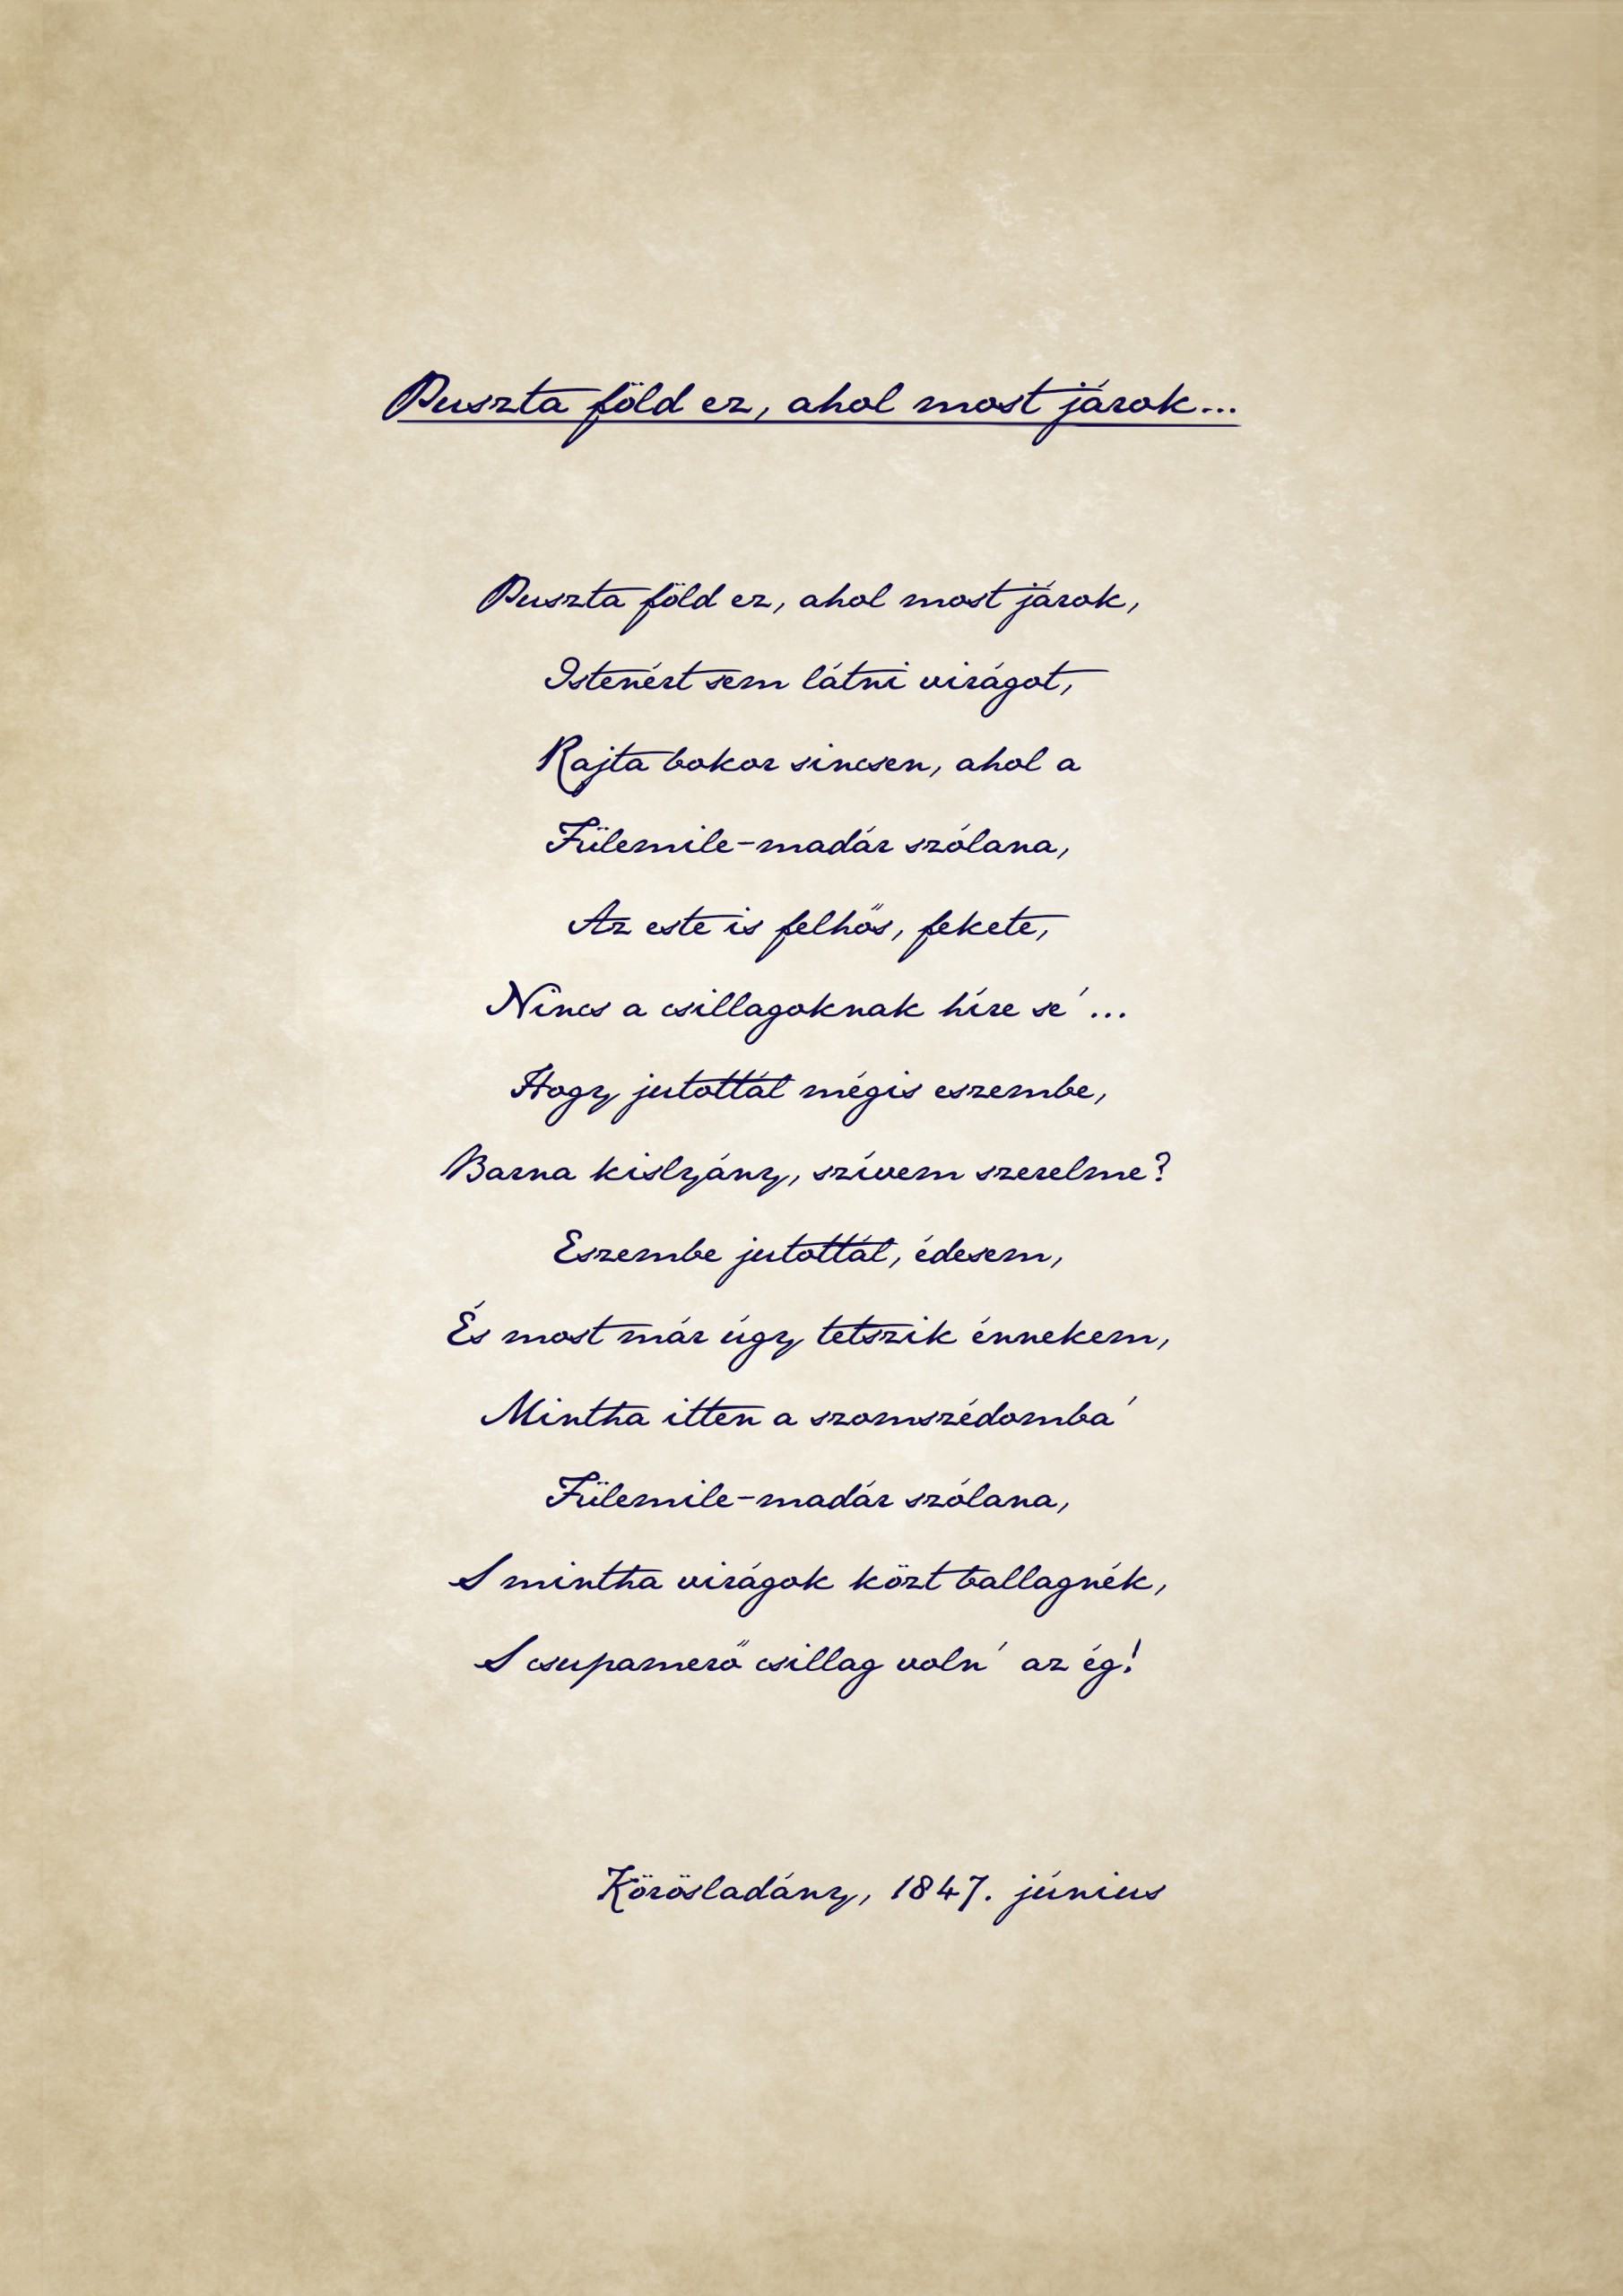 Puszta föld ez, ahol most járok...
Puszta föld ez, ahol most járok,
Istenért sem látni virágot,
Rajta bokor sincsen, ahol a
Fülemile-madár szólana,
Az este is felhős, fekete,
Nincs a csillagoknak híre se' ...
Hogy jutottál mégis eszembe,
Barna kislyány, szívem szerelme?
Eszembe jutottál, édesem,
És most már úgy tetszik énnekem,
Mintha itten a szomszédomba'
Fülemile-madár szólana,
S mintha virágok közt ballagnék,
S csupamerő csillag voln' az ég!
Körösladány, 1847. június